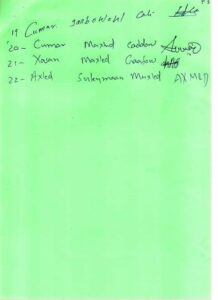 19 Cumar Cali
20- Cumar Maxled Caddow
21- Xasan Maxled Gaafow
22- Axled Suleymaan Maxled AXMED